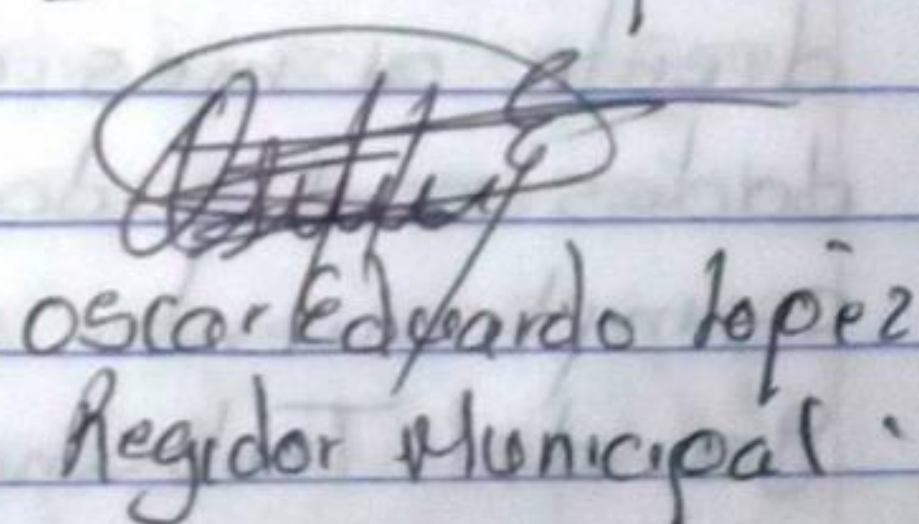 Oscar Eduardo Lopez
Regidor Municipal.